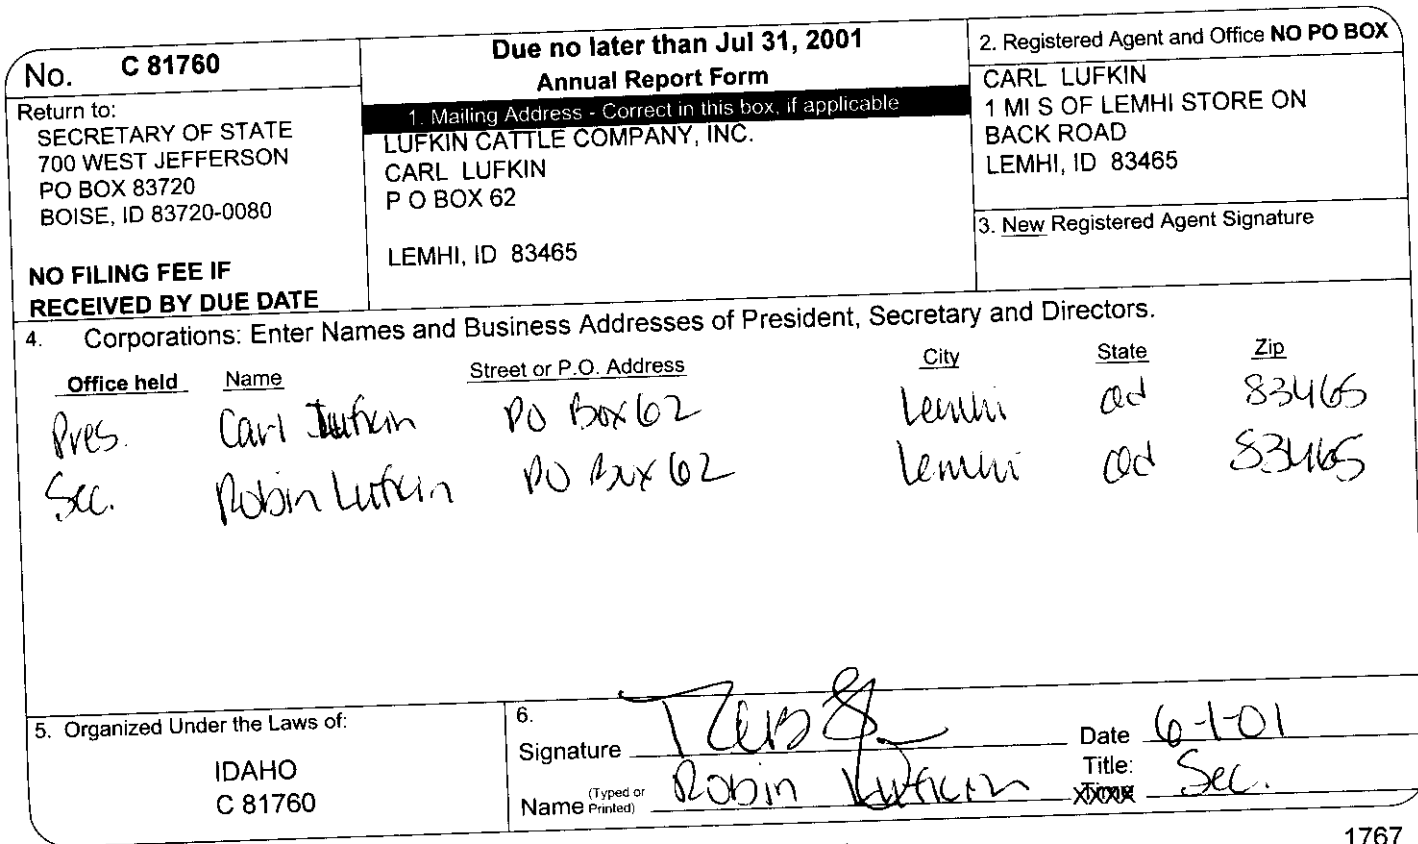 No. C 81760
Return to:
SECRETARY OF STATE
700 WEST JEFFERSON
PO BOX 83720
BOISE, ID 83720-0080
NO FILING FEE IF
RECEIVED BY DUE DATE
Due no later than Jul 31, 2001
Annual Report Form
1. Mailing Address - Correct in this box, if applicable
LUFKIN CATTLE COMPANY, INC.
CARL LUFKIN
P O BOX 62
LEMHI, ID 83465
2. Registered Agent and Office NO PO BOX
CARL LUFKIN
1 MI S OF LEMHI STORE ON
BACK ROAD
LEMHI, ID 83465
3. New Registered Agent Signature
4. Corporations: Enter Names and Business Addresses of President, Secretary and Directors.
Office held Name Street or P.O. Address City State Zip
Pres. Carl Lufkin PO Box 62 Lemhi 83465
Sec. Robin Lufkin PO Box 62 Lemhi 83465
5. Organized Under the Laws of:
IDAHO
C 81760
6.
Signature Date 6-1-01
Name (Typed or Printed) Robin Lufkin Title: Sec.
1767